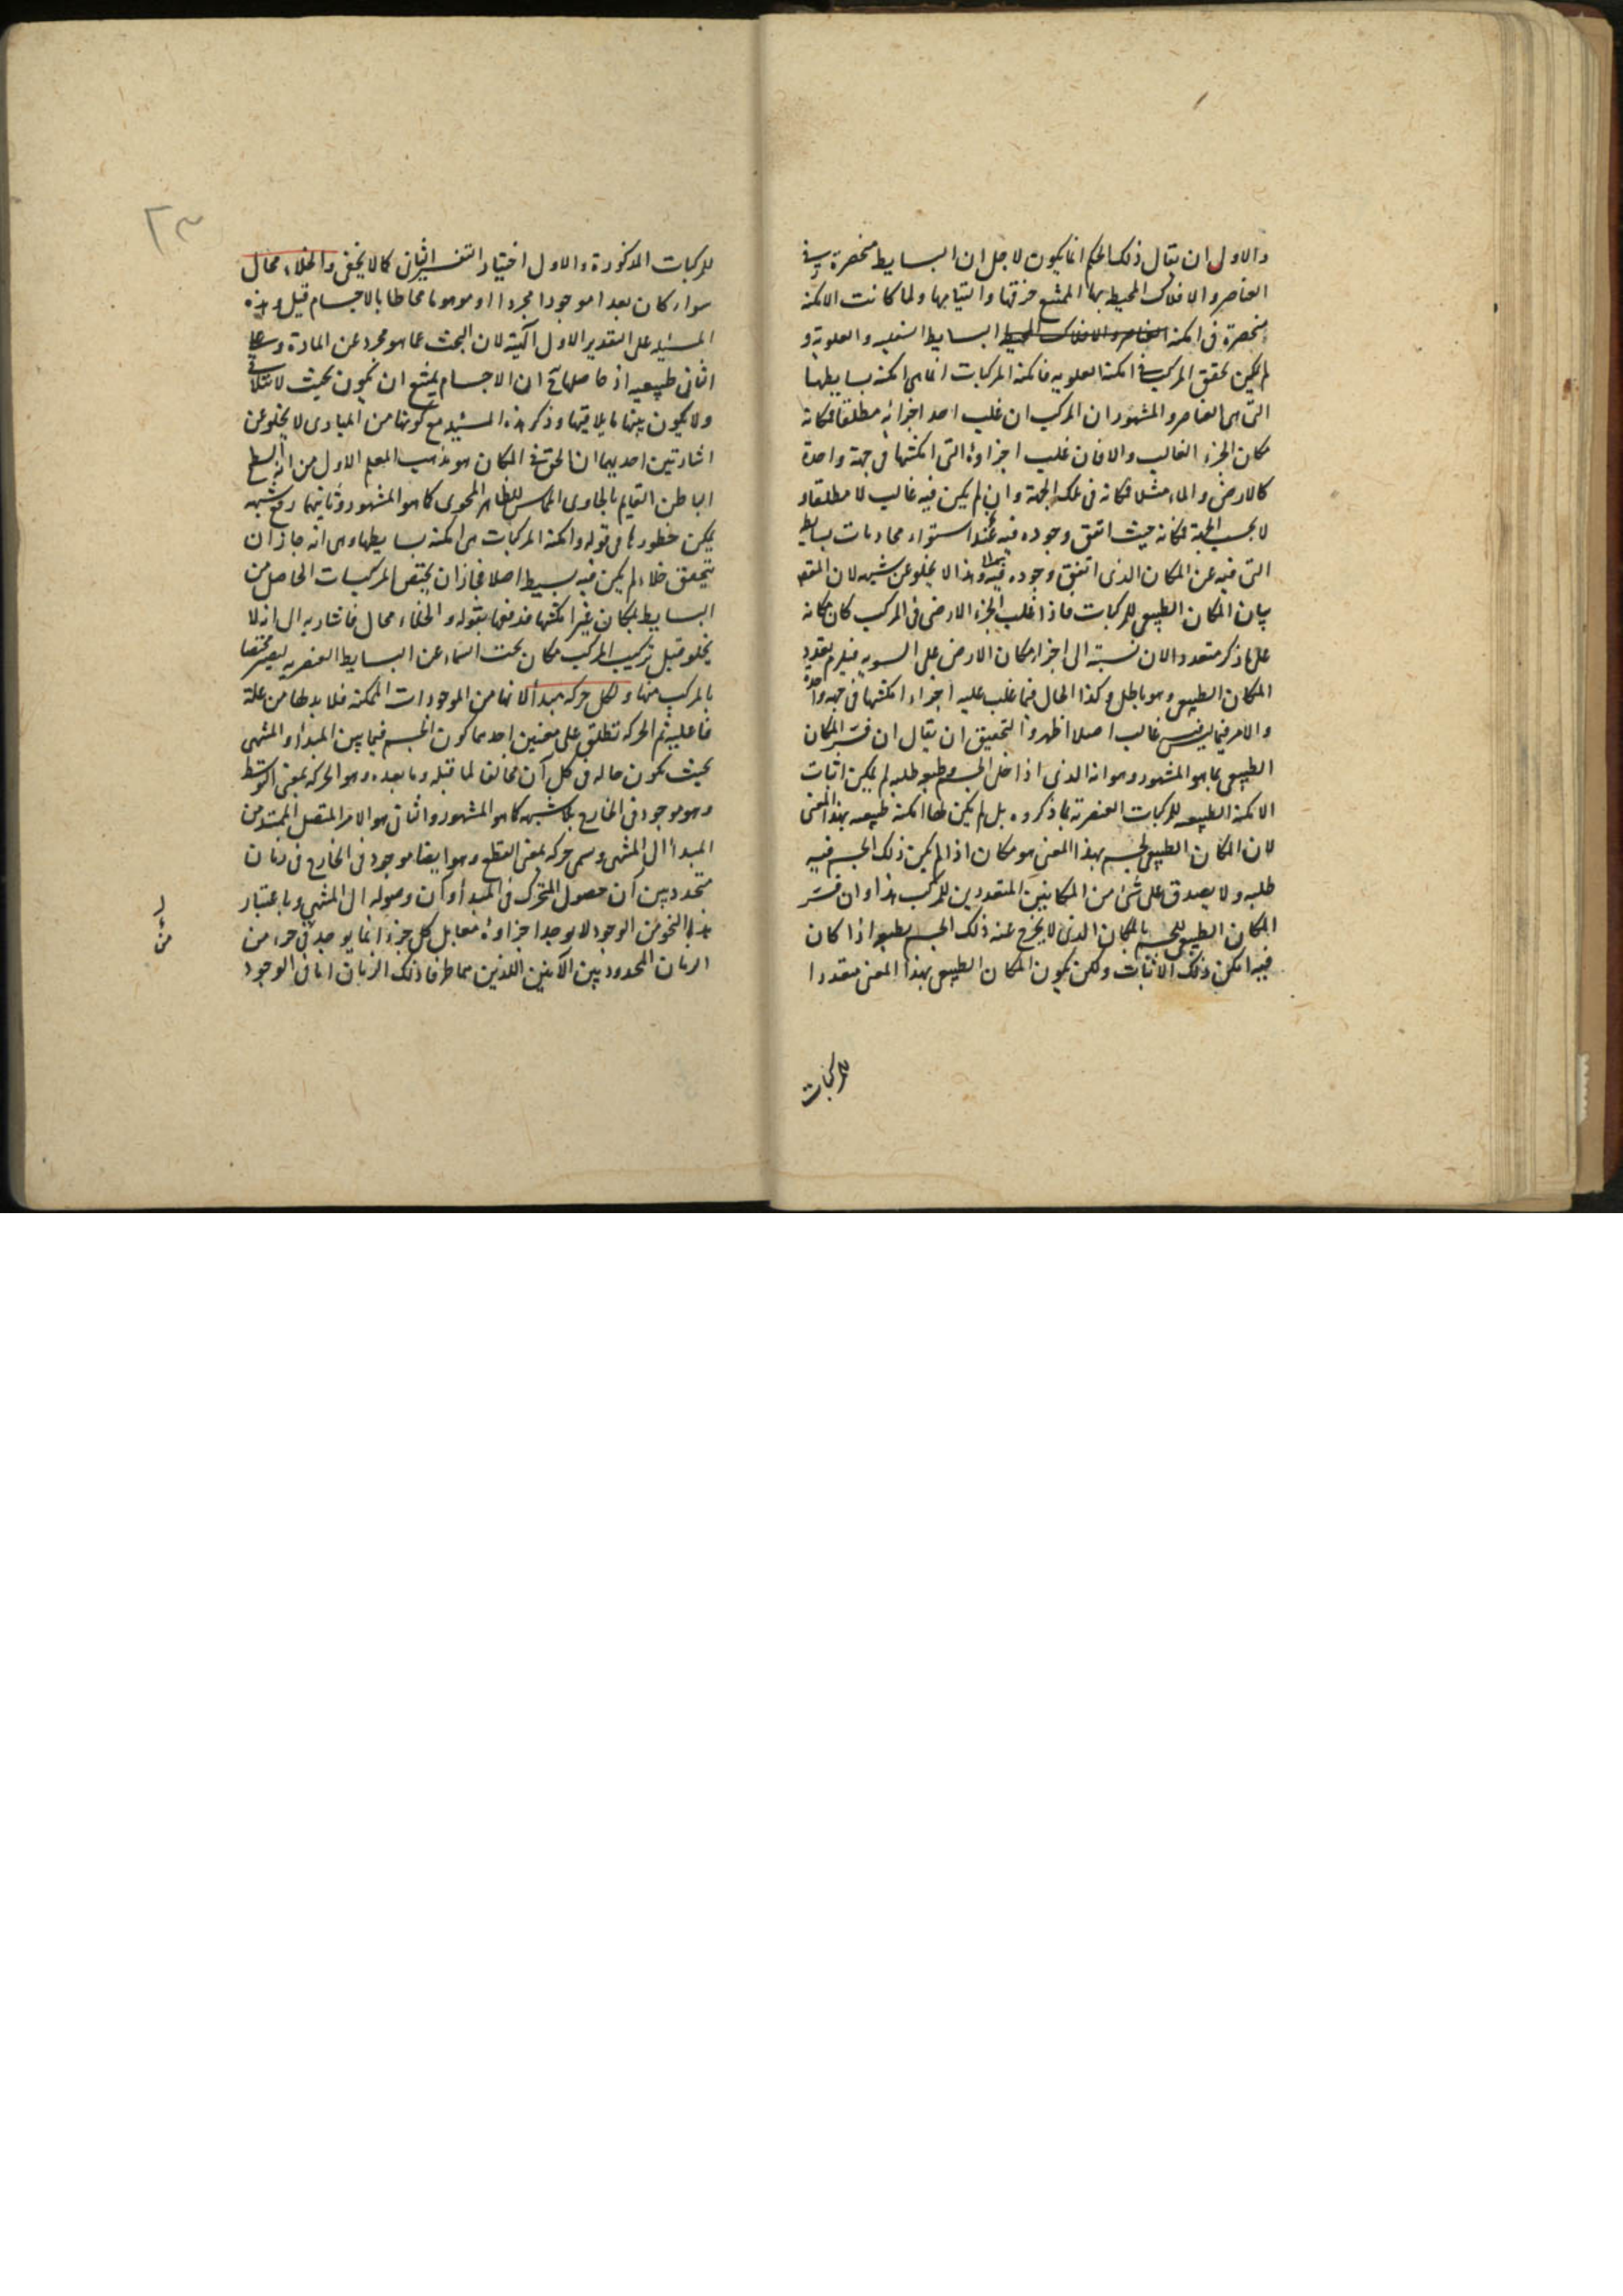 والاول ان يقال ذلك الحكم انما يكون لاجل ان البسايط منحصرة في
العناصر والافلاك المحيط بها الممتنع خرقها والتيامها ولما كانت الامكنة
منحصرة في امكنة العناصر والافلاك المحيط البسايط السفليه والعلوية و
لم يكن تحقق المركب في امكنة العلويه فامكنة المركبات انما هي امكنة بسايطها
التي هي العناصر والمشهور ان المركب ان غلب احد اجزائه مطلقا فمكانه
مكان الجزء الغالب والا فان غلب اجزاؤه التي امكنتها في جهة واحدة
كالارض والماء مثلا فمكانه في تلك الجهة وان لم يكن فيه غالب لا مطلقا و
لا بحسب الجهة فمكانه حيث اتفق وجوده فيه عند استواء محاذيات بسايط
التي فيه عن المكان الذي اتفق وجوده فيه وهذا لا يخلو عن شبهه لان المقصد
بيان المكان الطبيعي للمركبات فاذا غلب الجزء الارضي في المركب كان مكانه
على ما ذكر متعددا لان نسبته الى اجزاء مكان الارض على السويه فيلزم تعدد
المكان الطبيعي وهو باطل وكذا الحال فيما غلب عليه اجزاء امكنتها في جهة واحدة
والامر فيما ليس فيه غالب اصلا اظهر والتحقيق ان يقال ان فسر المكان
الطبيعي بما هو المشهور وهو انه الذي اذا خلى الجسم وطبعه طلبه لم يمكن اثبات
الامكنة الطبيعيه للمركبات العنصرية بما ذكروه بل لم يكن لها امكنة طبيعيه بهذا المعنى
لان المكان الطبيعي لجسم بهذا المعنى هو مكان اذا لم يكن ذلك الجسم فيه
طلبه ولا يصدق على شئ من المكانين المتعددين للمركب هذا وان فسر
المكان الطبيعي للجسم بالمكان الذي لا يخرج عنه ذلك الجسم بطبعه اذا كان
فيه امكن ذلك الاثبات ولكن يكون المكان الطبيعي بهذا المعنى متعددا
للمركبات
للمركبات المذكورة والاول اختيار التفسير الثاني كما لا يخفى والخلاء محال
سواء كان بعدا موجودا مجردا او موهوما محاطا بالاجسام قيل وهذه
المسئله على التقدير الاول آلهية لان البحث عما هو مجرد عن المادة وعلى
الثاني طبيعيه اذ حاصلها ح ان الاجسام يمتنع ان يكون بحيث لا يتلاقى
ولا يكون بينها ما يلاقيها وذكر هذه المسئله مع كونها من المبادى لا يخلو عن
اشارتين احديهما ان الحق في المكان هو مذهب المعلم الاول من انه السطح
الباطن القايم بالحاوى المماس للظاهر المحوى كما هو المشهور وثانيهما رفع شبهه
يمكن خطورها في قوله وامكنة المركبات هي امكنة بسايطها وهي انه جاز ان
يتحقق خلاء لم يكن فيه بسيط اصلا فجاز ان يختص المركبات الحاصل من
البسايط بمكان غير امكنتها فدفعها بقوله والخلاء محال فاشار به الى انه لا
يخلو قبل تركيب المركب مكان تحت السماء عن البسايط العنصريه ليصير مختصا
بالمركب منها ولكل حركه مبدأ لانها من الموجودات الممكنة فلا بد لها من علة
فاعلية ثم الحركه تطلق على معنيين احدهما كون الجسم فيما بين المبدأ والمنتهى
بحيث يكون حاله في كل آن مخالفا لما قبله وما بعده وهو الحركه بمعنى التوسط
وهو موجود في الخارج بلا شبهه كما هو المشهور والثاني هو الامر المتصل الممتد من
المبدأ الى المنتهى وسمى حركه بمعنى القطع وهو ايضا موجود في الخارج في زمان
متحدد بين آن حصول المتحرك في المبدأ وآن وصوله الى المنتهى وباعتبار
هذا النحو من الوجود لا يوجد اجزاؤه مقابل كل جزء انما يوجد في جزء من
الزمان المحدود بين الآنين اللذين هما طرفا ذلك الزمان اما في الوجود